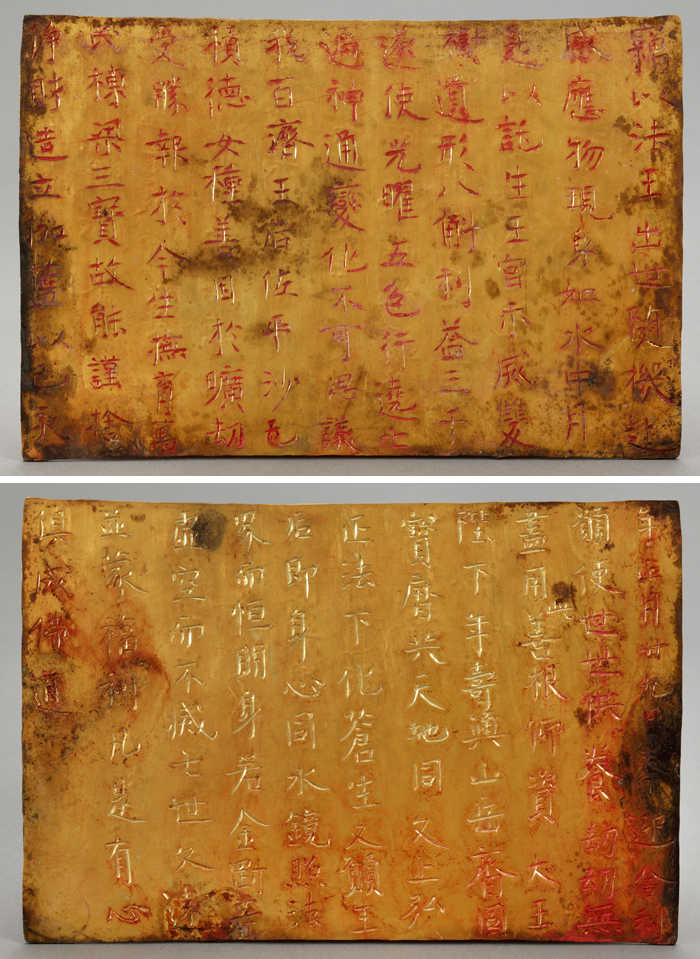 竊以法王出世隨機赴
感應物現身如水中月
是以託生王宮示滅雙
樹遺形八斛利益三千
遂使光曜五色行遶七
遍神通變化不可思議
我百濟王后佐平沙乇
積德女種善因於曠劫
受勝報於今生撫育萬
民棟梁三寶故能謹捨
淨財造立伽藍以己亥
年正月卄九日奉迎舍利
願使世世供養劫劫無
盡用此善根仰資大王
陛下年壽與山岳齊固
寶曆共天地同久上弘
正法下化蒼生又願王
后即身心同水鏡照法
界而恒明身若金剛等
虛空而不滅七世久遠
並蒙福利凡是有心
俱成佛道